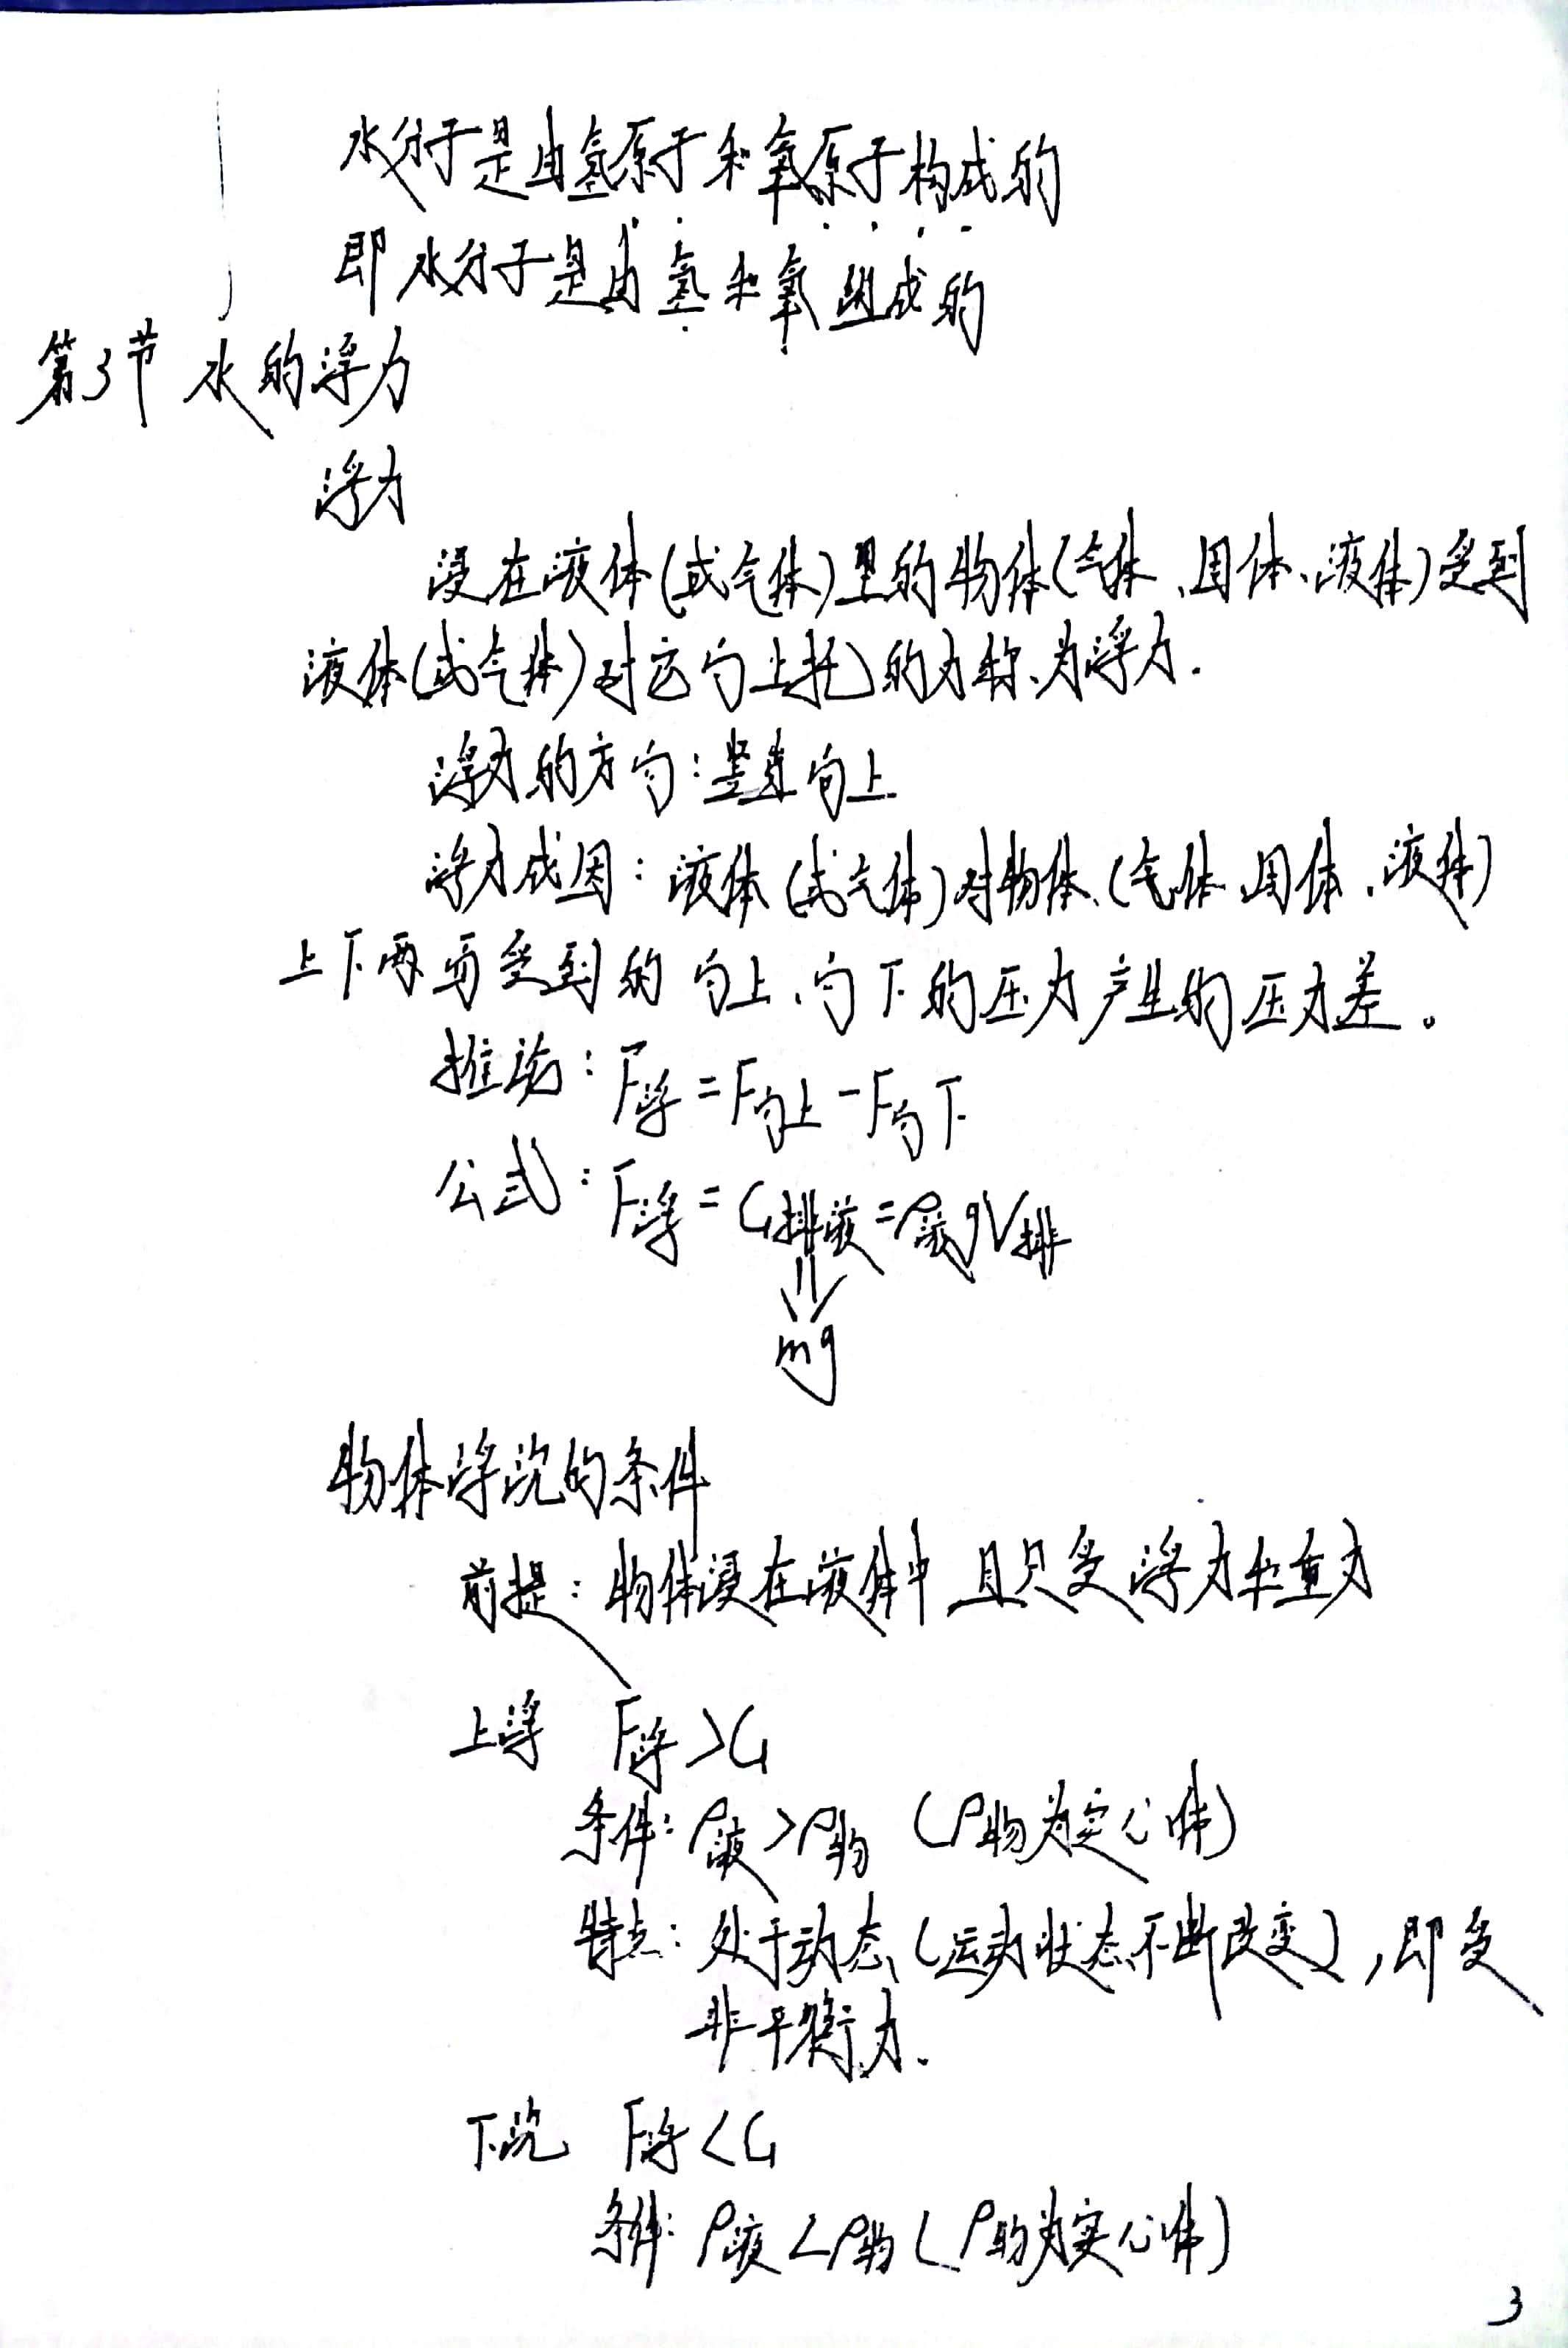 水分子是由氢原子和氧原子构成的
即水分子是由氢和氧组成的
第3节 水的浮力
浮力
浸在液体(或气体)里的物体(气体、固体、液体)受到
液体(或气体)对它向上托的力称为浮力.
浮力的方向:竖直向上
浮力成因:液体(或气体)对物体(气体、固体、液体)
上下两面受到的向上、向下的压力产生的压力差。
推论:F浮=F向上-F向下
公式:F浮=G排液=ρ液gV排
⇓
mg
物体浮沉的条件
前提:物体浸在液体中且只受浮力和重力
上浮 F浮>G
条件:ρ液>ρ物(ρ物为实心体)
特点:处于动态(运动状态不断改变),即受
非平衡力.
下沉 F浮<G
条件:ρ液<ρ物(ρ物为实心体)
3